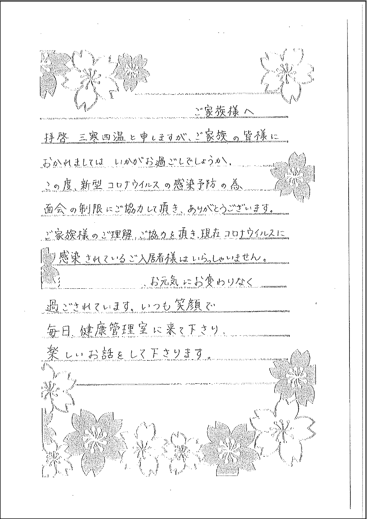 ご家族様へ
拝啓 三寒四温と申しますが、ご家族の皆様に
おかれましては いかがお過ごしでしょうか。
この度、新型コロナウイルスの感染予防の為、
面会の制限にご協力して頂き、ありがとうございます。
ご家族様のご理解、ご協力を頂き、現在コロナウイルスに
感染されているご入居者様はいらっしゃいません。
お元気にお変わりなく
過ごされています。いつも笑顔で
毎日、健康管理室に来て下さり、
楽しいお話をして下さります。